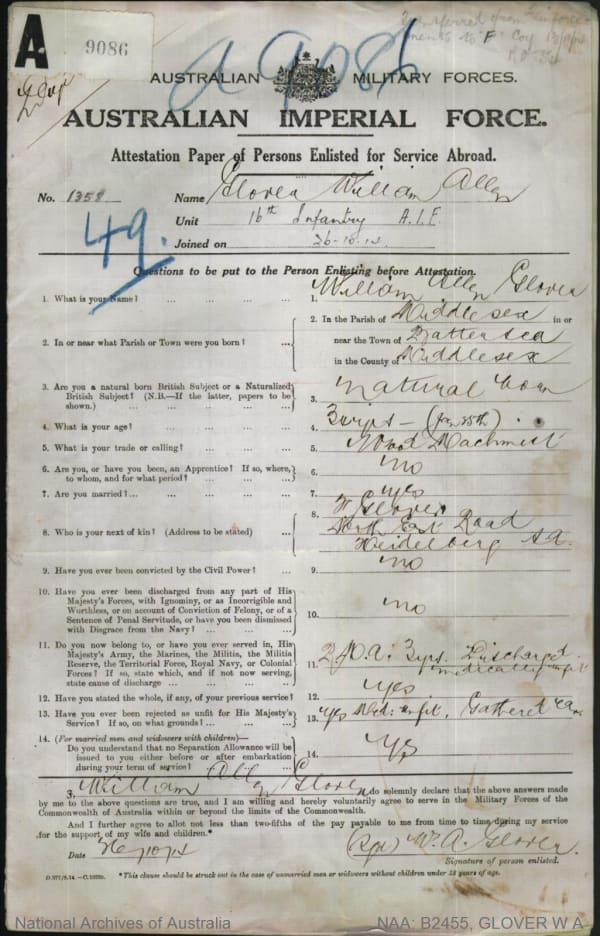 A
9086
A 9086
Transferred from Reinforce-
ments to "F" Coy
AUSTRALIAN MILITARY FORCES.
AUSTRALIAN IMPERIAL FORCE.
Attestation Paper of Persons Enlisted for Service Abroad.
No. 1358 Name Glover William Allen
49.
Unit 16th Infantry A.I.F.
Joined on 26-10-14
Questions to be put to the Person Enlisting before Attestation.
1. What is your Name? ... ... ... ... 1. William Allen Glover
2. In or near what Parish or Town were you born? ... 2. In the Parish of Middlesex in or
near the Town of Battersea
in the County of Middlesex
3. Are you a natural born British Subject or a Naturalized
British Subject? (N.B.—If the latter, papers to be
shown.) ... ... ... ... ... 3. Natural born
4. What is your age? ... ... ... ... 4. yrs -
5. What is your trade or calling? ... ... ... 5. Wood Machinist
6. Are you, or have you been, an Apprentice? If so, where,
to whom, and for what period? ... ... ... 6. no
7. Are you married? ... ... ... ... ... 7. yes
8. Who is your next of kin? (Address to be stated) ... 8. Glover
North East Road
Heidelberg S.A.
9. Have you ever been convicted by the Civil Power? ... 9. no
10. Have you ever been discharged from any part of His
Majesty's Forces, with Ignominy, or as Incorrigible and
Worthless, or on account of Conviction of Felony, or of a
Sentence of Penal Servitude, or have you been dismissed
with Disgrace from the Navy? ... ... ... 10. no
11. Do you now belong to, or have you ever served in, His
Majesty's Army, the Marines, the Militia, the Militia
Reserve, the Territorial Force, Royal Navy, or Colonial
Forces? If so, state which, and if not now serving,
state cause of discharge ... ... ... ... 11. 3 yrs. Discharged
medically unfit
12. Have you stated the whole, if any, of your previous service? 12. yes
13. Have you ever been rejected as unfit for His Majesty's
Service? If so, on what grounds? ... ... ... 13. yes Med: unfit. Gathered Ear
14. (For married men and widowers with children)—
Do you understand that no Separation Allowance will be
issued to you either before or after embarkation
during your term of service? ... ... ... 14. yes
I, William Allen Glover do solemnly declare that the above answers made
by me to the above questions are true, and I am willing and hereby voluntarily agree to serve in the Military Forces of the
Commonwealth of Australia within or beyond the limits of the Commonwealth.
And I further agree to allot not less than two-fifths of the pay payable to me from time to time during my service
for the support of my wife and children.*
Date 26/10/14 (Sgd) W. A. Glover.
Signature of person enlisted.
*This clause should be struck out in the case of unmarried men or widowers without children under 18 years of age.
National Archives of Australia NAA: B2455, GLOVER W A